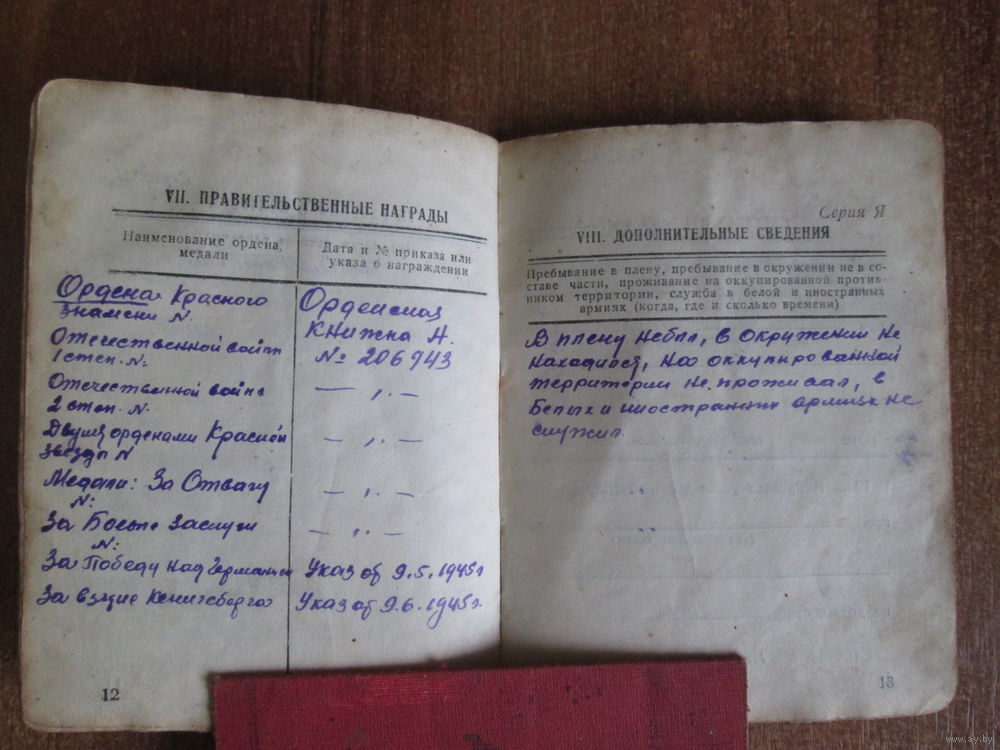 VII. ПРАВИТЕЛЬСТВЕННЫЕ НАГРАДЫ
Наименование ордена,
медали
Дата и № приказа или
указа о награждении
Ордена Красного
знамени N.
Орденская
книжка А.
№ 206943
Отечественной войны
1 степ. N:
Отечественной войны
2 степ. N.
— „ —
Двумя орденами Красной
звезды N
— „ —
Медали: За Отвагу
N:
— „ —
За Боевые Заслуги
N:
— „ —
За Победу над Германией
Указ от 9.5.1945г
За взятие Кенигсберга
Указ от 9.6.1945г.
12
Серия Я
VIII. ДОПОЛНИТЕЛЬНЫЕ СВЕДЕНИЯ
Пребывание в плену, пребывание в окружении не в со-
ставе части, проживание на оккупированной против-
ником территории, служба в белой и иностранных
армиях (когда, где и сколько времени)
В плену не был, в окружении не
находился, на оккупированной
территории не проживал, в
Белых и иностранных армиях не
служил.
13
www.ay.by